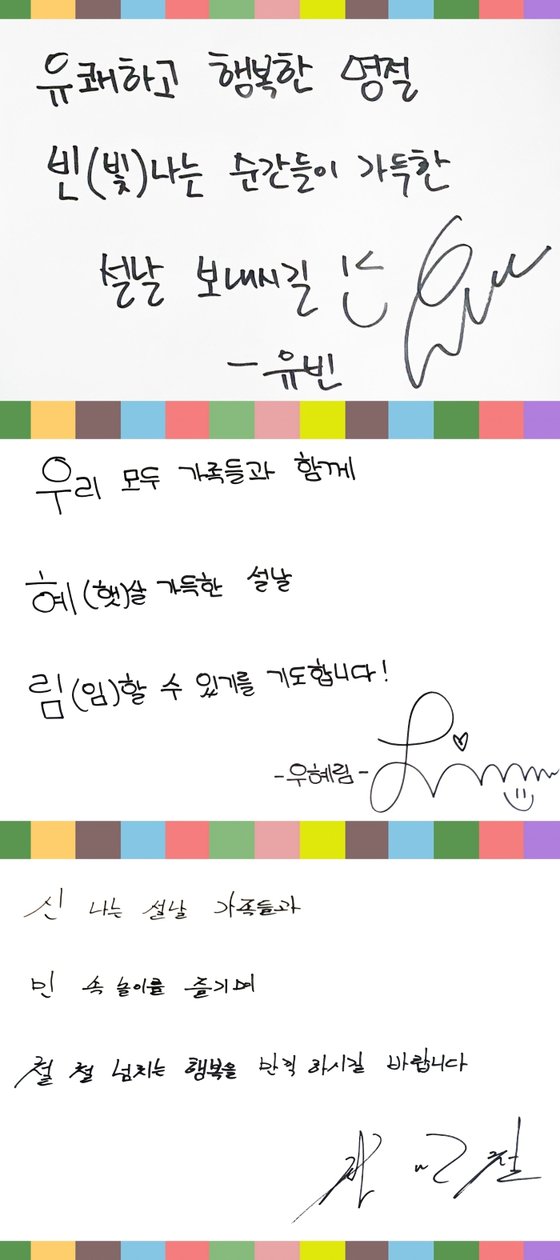 유쾌하고 행복한 명절
빈(빛)나는 순간들이 가득한
설날 보내시길
- 유빈
우리 모두 가족들과 함께
혜(햇)살 가득한 설날
림(임)할 수 있기를 기도합니다!
- 우혜림 -
신 나는 설날 가족들과
민 속 놀이를 즐기며
철 철 넘치는 행복을 만끽 하시길 바랍니다